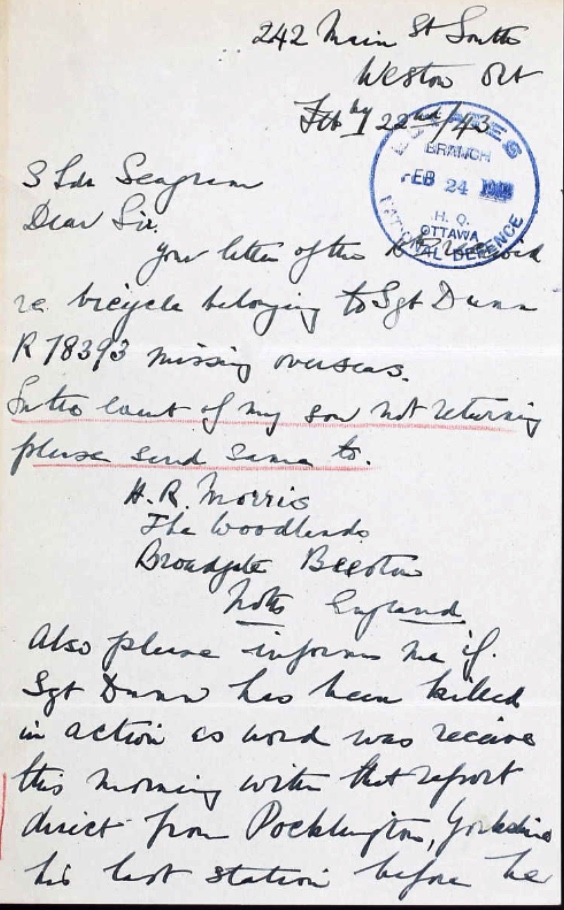 242 Main St South
Weston Ont
Feb 22nd/43
ESTATES
BRANCH
FEB 24
H. Q.
OTTAWA
NATIONAL DEFENCE
S Ldr Seagram
Dear Sir.
your letter of the
re bicycle belonging to Sgt Dunn
R 78393 missing overseas.
In the event of my son not returning
please send same to.
H. R. Morris
The Woodlands
Broadgate Beeston
Notts England.
Also please inform me if.
Sgt Dunn has been killed
in action as word was receive
this morning with that report
direct from Pocklington, Yorkshire
his last station before he